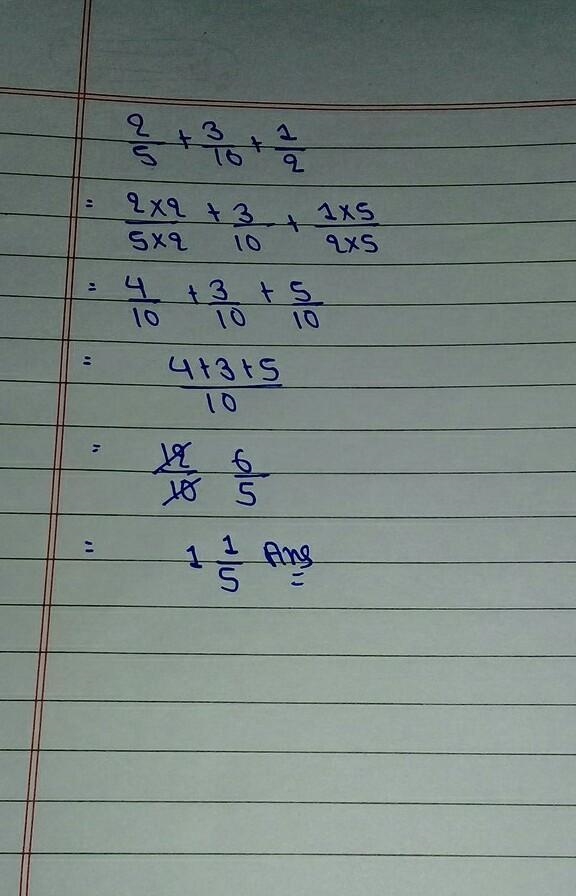 2/5 + 3/10 + 1/2
= 2×2/5×2 + 3/10 + 1×5/2×5
= 4/10 + 3/10 + 5/10
= 4+3+5/10
= 12/10 6/5
= 1 1/5 Ans